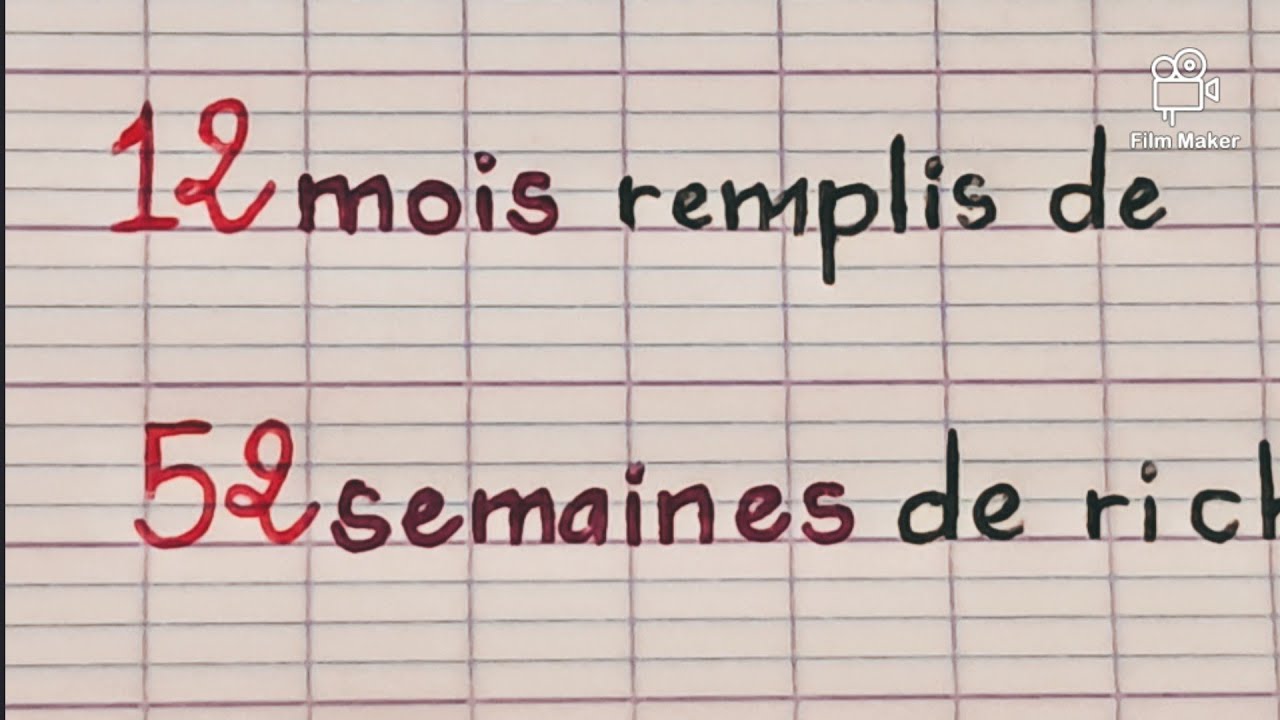 Film Maker
12 mois remplis de
52 semaines de rich